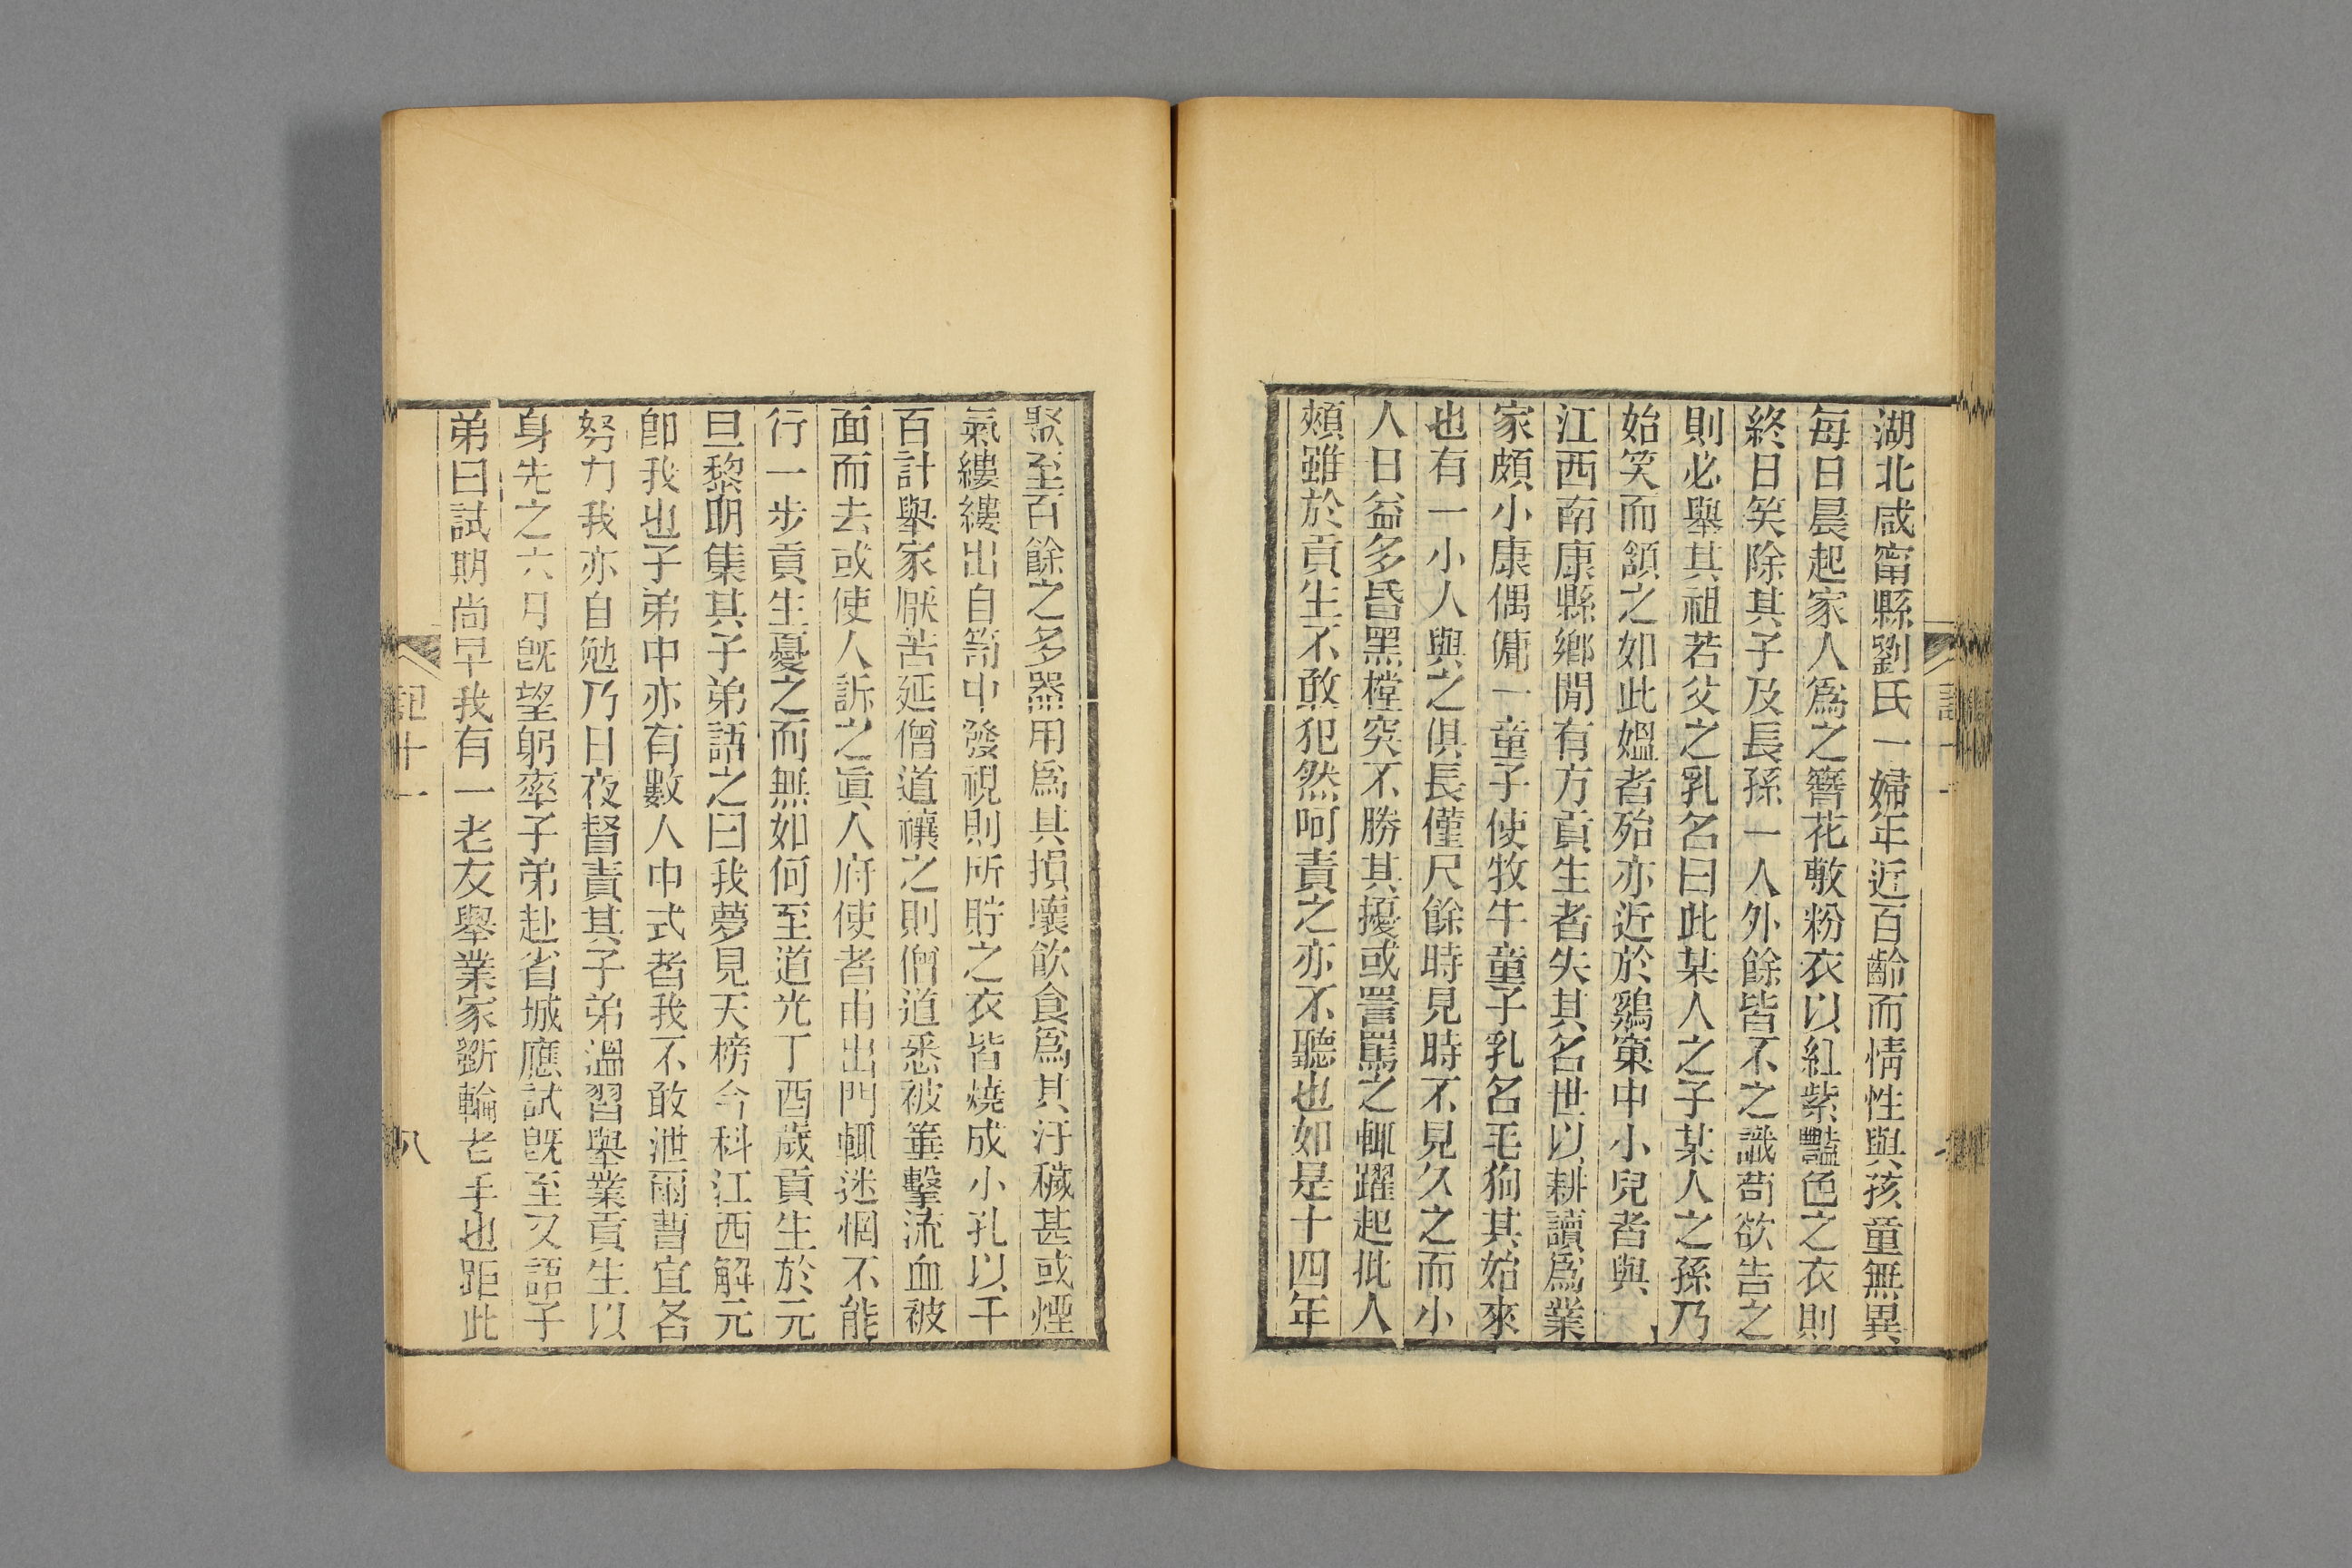 湖北咸甯縣劉氏一婦年近百齡而情性與孩童無異
每日晨起家人爲之簪花敷粉衣以紅紫豔色之衣則
終日笑除其子及長孫一人外餘皆不之識苟欲告之
則必舉其祖若父之乳名曰此某人之子某人之孫乃
始笑而頷之如此媼者殆亦近於鷄窠中小兒者與
江西南康縣鄉閒有方貢生者失其名世以耕讀爲業
家頗小康偶傭一童子使牧牛童子乳名毛狗其始來
也有一小人與之俱長僅尺餘時見時不見久之而小
人日益多昏黑樘突不勝其擾或詈罵之輒躍起批人
頰雖於貢生不敢犯然呵責之亦不聽也如是十四年
聚至百餘之多器用爲其損壞飲食爲其汙穢甚或煙
氣縷縷出自笥中發視則所貯之衣皆燒成小孔以千
百計舉家厭苦延僧道禳之則僧道悉被箠擊流血被
面而去或使人訴之眞人府使者甫出門輒迷惘不能
行一步貢生憂之而無如何至道光丁酉歲貢生於元
旦黎明集其子弟語之曰我夢見天榜今科江西解元
卽我也子弟中亦有數人中式者我不敢泄爾曹宜各
努力我亦自勉乃日夜督責其子弟溫習舉業貢生以
身先之六月旣望躬率子弟赴省城應試旣至又語子
弟曰試期尚早我有一老友舉業家斲輪老手也距此
記十一
八